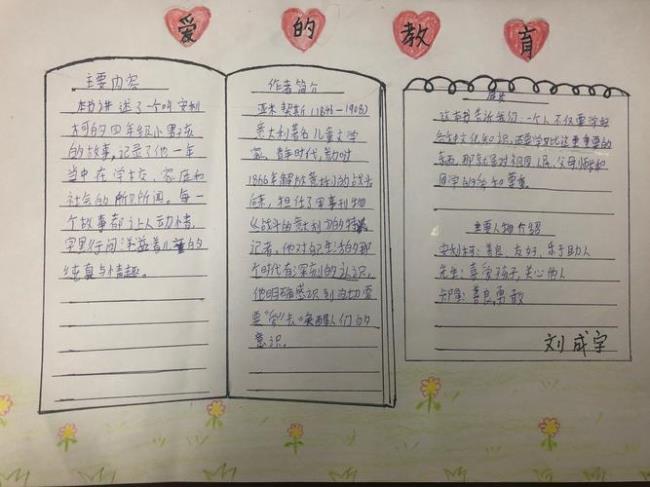 爱的教育
主要内容
本书讲述了一个叫安利
柯的四年级小男孩
的故事,记录了他一年
当中在学校、家庭和
社会的所见所闻。每一
个故事都让人动情,
字里行间洋溢着儿童的
纯真与情趣。
作者简介
亚米契斯(1846-1908)
意大利著名儿童文学
家,青年时代,参加过
1866年解放意大利的战斗
后来,担任了军事刊物
《战斗的意大利》的特派
记者,他对自己生活的那
个时代有深刻的认识,
他明确感识到迫切需
要"爱"去唤醒人们的
意识。
这本书告诉我们:一个人不仅要学好
各种文化知识,还要学习比这更重要的
东西,那就是对祖国、人民、父母、师长和
同学的
主要人物介绍
安利柯:善良、友好、乐于助人
先生:喜爱孩子,关心他人
善良,勇敢
刘成宇